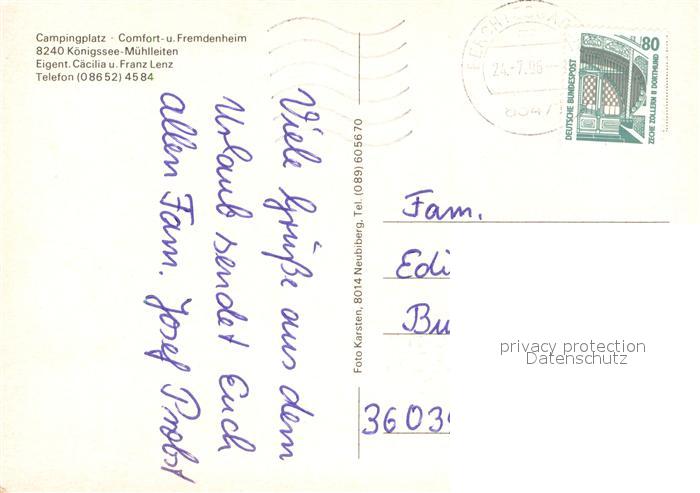 Campingplatz · Comfort- u. Fremdenheim
8240 Königssee-Mühlleiten
Eigent. Cäcilia u. Franz Lenz
Telefon (0 86 52) 45 84
Viele Grüße aus dem
Urlaub sendet Euch
allen Fam. Josef Probst
Foto Karsten, 8014 Neubiberg, Tel. (089) 60 56 70
24.-7.96
80
DEUTSCHE BUNDESPOST
ZECHE ZOLLERN II DORTMUND
Fam.
Edi
Bu
36039
privacy protection
Datenschutz